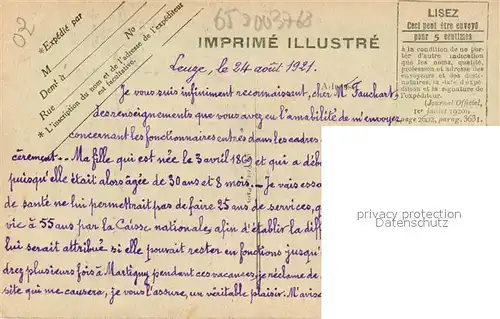 02
65 2003768
*Expédié par
M
Demt à
Rue
No
*L'inscription du nom et de l'adresse de l'expéditeur
est facultative.
IMPRIMÉ ILLUSTRÉ
LISEZ
Ceci peut être envoyé
pour 5 centimes
à la condition de ne por-
ter d'autre indication
que les noms, qualité,
profession et adresse des
envoyeurs et des desti-
nataires, la date d'expé-
dition et la signature de
l'expéditeur.
(Journal Officiel,
1er 1920,
page 2602, parag. 3651.
Leuge, le 24 août 1921.
Je vous suis infiniment reconnaissant, cher M. Fauchart
des renseignements que vous avez eu l'amabilité de m'envoyer
concernant les fonctionnaires entrés dans les cadres
cèrement.. Ma fille qui est née le 3 avril 1869 et qui a déb
puisqu'elle était alors âgée de 30 ans et 8 mois. Je vais essa
de santé ne lui permettrait pas de faire 25 ans de services, q
vie à 55 ans par la Caisse nationale, afin d'établir la diff
lui serait attribué si elle pouvait rester en fonctions jusqu'
drez plusieurs fois à Martigny pendant ces vacances, je réclame de
site qui me causera, je vous l'assure, un véritable plaisir. M'avise
privacy protection
Datenschutz